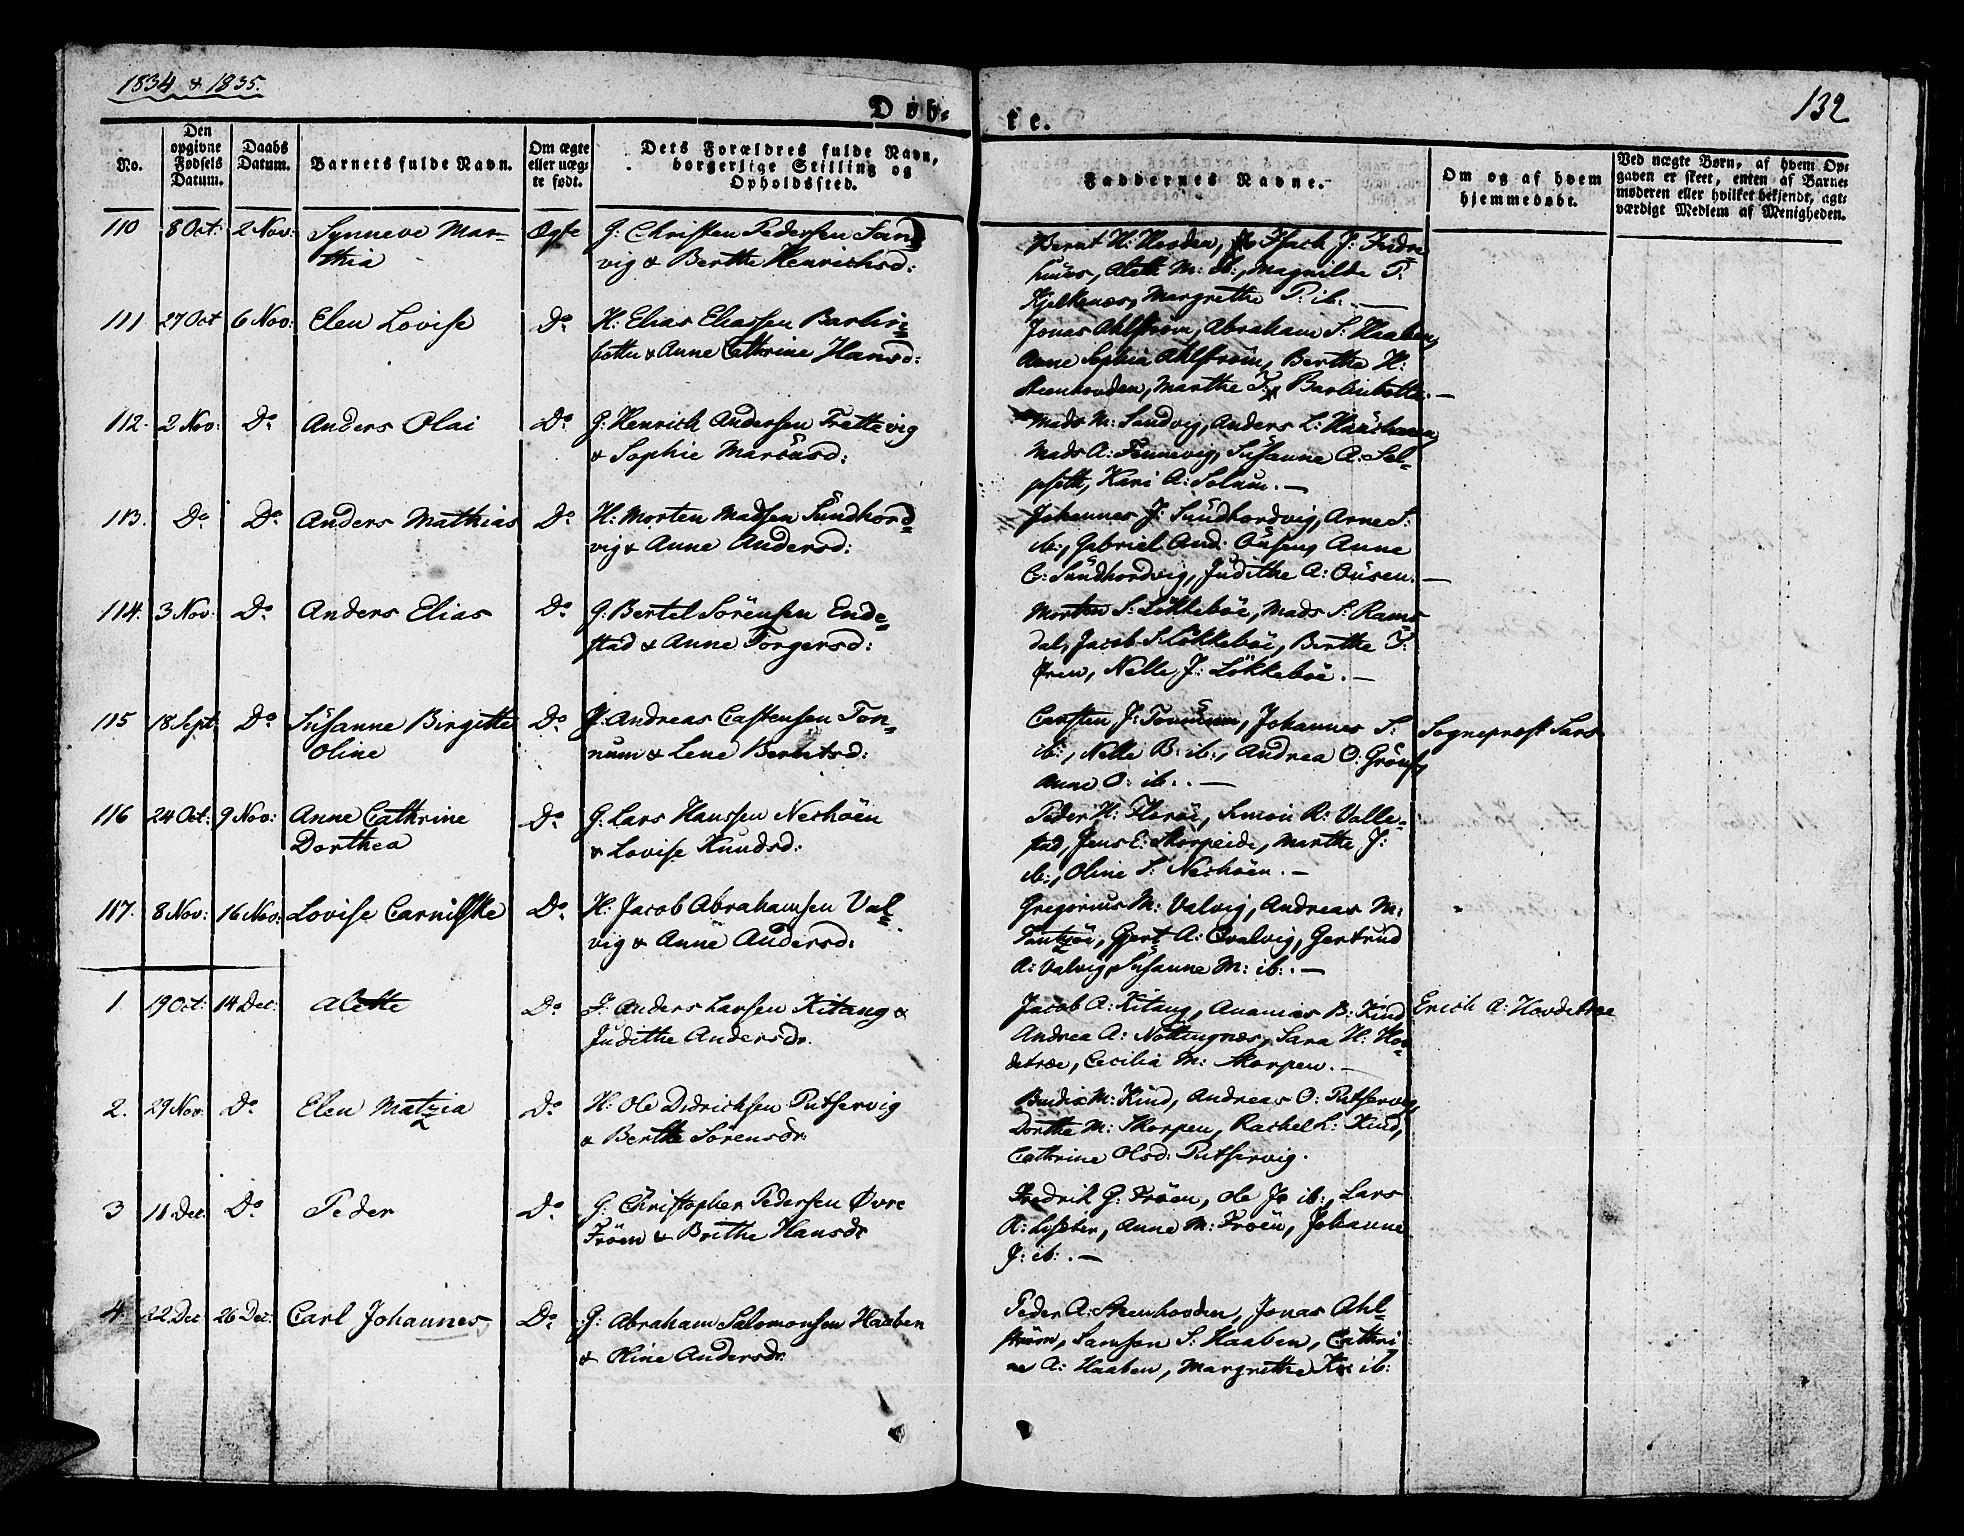 1834 & 1835.
132
Døb-
te.
No.
Den opgivne Fødsels Datum.
Daabs Datum.
Barnets fulde Navn.
Om ægte eller uægte født.
Dets Forældres fulde Navn, borgerlige Stilling og Opholdssted.
Faddernes Navne.
Om og af hvem hjemmedøbt.
Ved uægte Børn, af hvem Opgaven er skeet, enten af Barnemoderen eller hvilket bekjendt, agtværdigt Medlem af Menigheden.
110 8 Oct: 2 Nov: Synneve Mar-
thia
Ægte
G: Christen Pedersen Sand
vig & Berthe Henrichsd:
Bernt H: Hovden, Isach J: Indre
huus, Aleth M: ib:, Magnilde P:
Kjelkenæs, Margrethe P: ib:. —
111 27 Oct 6 Nov: Elen Lovise
Do
H: Elias Eliassen Barlin-
botten & Anne Cathrine Hansd:
Jonas Ahlström, Abraham S: Haaben,
Anne Sophia Ahlström, Berthe H:
Steenhovden, Marthe J: Barlinbotte. —
112. 2 Nov: Do Anders Olai
Do
G: Henrich Andersen Frettevig
& Sophie Marcusd:
Mads M: Sandvig, Anders L:
Mads A: Finnevig, Susanne A: Sel-
pseth, Kari A: Solum. —
113. Do Do Anders Mathias
Do
H: Morten Madsen Sundhord
vig & Anne Andersd:
Johannes J: Sundhordvig, Arne S:
ib:, Gabriel And: Ousen, Anne
C: Sundhordvig, Judithe A: Ousen. —
114. 3 Nov: Do Anders Elias
Do
G: Bertel Sörensen Ende-
stad & Anne Torgersd:
Morten S: Lökkeböe, Mads S: Rams
dal, Jacob S: Lökkeböe, Berthe T:
Ören, Nelle J: Lökkeböe. —
115 18 Sept: Do Susanne Birgitte
Oline
Do
G: Andreas Castensen Ton-
num & Lene Berntsd:
Carsten J: Tonnum, Johannes S:
ib:, Nelle B: ib:, Andrea O: Grönsf,
Anne O: ib:. —
Sogneprest Sars
116 24 Oct: 9 Nov: Anne Cathrine
Dorthea
Do
G: Lars Hanssen Neshöen
& Lovise Knudsd:
Peder H: Floröe, Simon R: Valle-
stad, Jens E: Skorpeide, Marthe J:
ib:, Oline S: Neshöen. —
117. 8 Nov: 16 Nov: Lovise Carnilske
Do
H: Jacob Abrahamsen Val-
vig & Anne Andersd:
Gregorius M: Valvig, Andreas M:
Tantzöe, Gjert A: Qvalvig, Gertrud
A: Valvig, Susanne M: ib:. —
1. 19 Oct: 14 Dec: Alette
Do
F: Anders Larsen Kitang &
Judithe Andersdr.
Jacob A: Kitang, Ananias B: Kind
Andrea A: Nöttingnes, Sara H: Hov-
detræe, Cecilia M: Skorpen. —
Erich A: Hovdetræe
2. 29 Nov: Do Elen Matzia
Do
H: Ole Didrichsen Putservig
& Berthe Sörensdr.
M: Kind, Andreas O: Putservig,
Dorthe M: Skorpen, Rachel L: Kind,
Cathrine Olsd: Putservig.
3 11 Dec: Do Peder
Do
G: Christopher Pedersen Øvre
Fröen & Brithe Hansdr
Fredrik G: Fröen, Ole J: ib:, Lars
R: Lisæter, Anne M: Fröen, Johanne
J: ib:. —
4. 22 Dec 26 Dec: Carl Johannes
Do
G: Abraham Salomonsen Haaben
& Oline Andersdr.
Peder A: Steenhovden, Jonas Ahl-
ström, Samsen S: Haaben, Cathri-
ne A: Haaben, Margrethe K: ib: